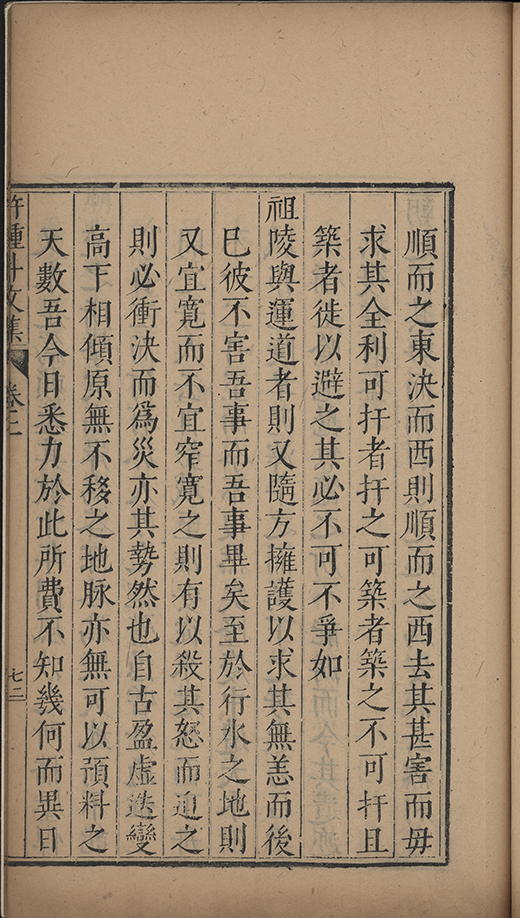 順而之東決而西則順而之西去其甚害而毋
求其全利可扞者扞之可築者築之不可扞且
築者徙以避之其必不可不爭如
祖陵與運道者則又隨方擁護以求其無恙而後
已彼不害吾事而吾事畢矣至於行水之地則
又宜寬而不宜窄寬之則有以殺其怒而迫之
則必衝決而為災亦其勢然也自古盈虛迭變
高下相傾原無不移之地脉亦無可以預料之
天數吾今日悉力於此所費不知幾何而異日
許鍾斗文集
卷二
七二